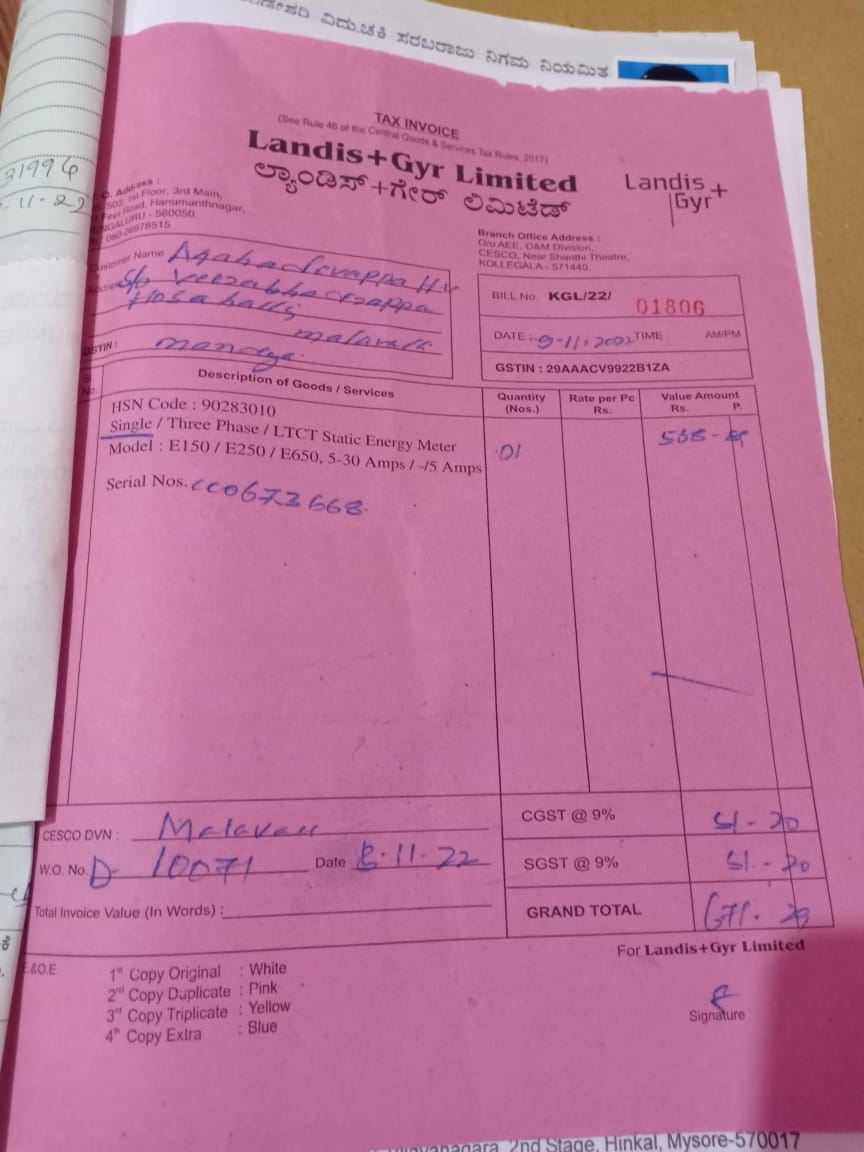 ವಿದ್ಯುಚ್ಛಕ್ತಿ ಸರಬರಾಜು ನಿಗಮ ನಿಯಮಿತ
31994
11.22
TAX INVOICE
(See Rule 46 of the Central Goods & Services Tax Rules, 2017)
Landis+Gyr Limited
ಲ್ಯಾಂಡಿಸ್+ಗೇರ್ ಲಿಮಿಟೆಡ್
Landis+
Gyr
Address :
503, 1st Floor, 3rd Main,
Feet Road, Hanumanthnagar,
560050.
080-26678515
Branch Office Address :
O/o AEE, O&M Division,
CESCO, Near Shanthi Theatre,
KOLLEGALA - 571440.
Customer Name
Address S/o Veerabhadrappa
Hosahalli
malavalli
GSTIN : mandya.
BILL No. KGL/22/ 01806
DATE : 9-11-2022 TIME : AM/PM
GSTIN : 29AAACV9922B1ZA
No. Description of Goods / Services Quantity (Nos.) Rate per Pc Rs. Value Amount Rs. P.
HSN Code : 90283010
Single / Three Phase / LTCT Static Energy Meter
Model : E150 / E250 / E650, 5-30 Amps / -/5 Amps 01 568-
Serial Nos. CC0673668
CESCO DVN : Malavalli
CGST @ 9% 51-20
W.O. No. D- 10071 Date 8.11.22
SGST @ 9% 51-20
Total Invoice Value (In Words) :
GRAND TOTAL 671.
For Landis+Gyr Limited
E.&O.E.
1st Copy Original : White
2nd Copy Duplicate : Pink
3rd Copy Triplicate : Yellow
4th Copy Extra : Blue
Signature
2nd Stage, Hinkal, Mysore-570017